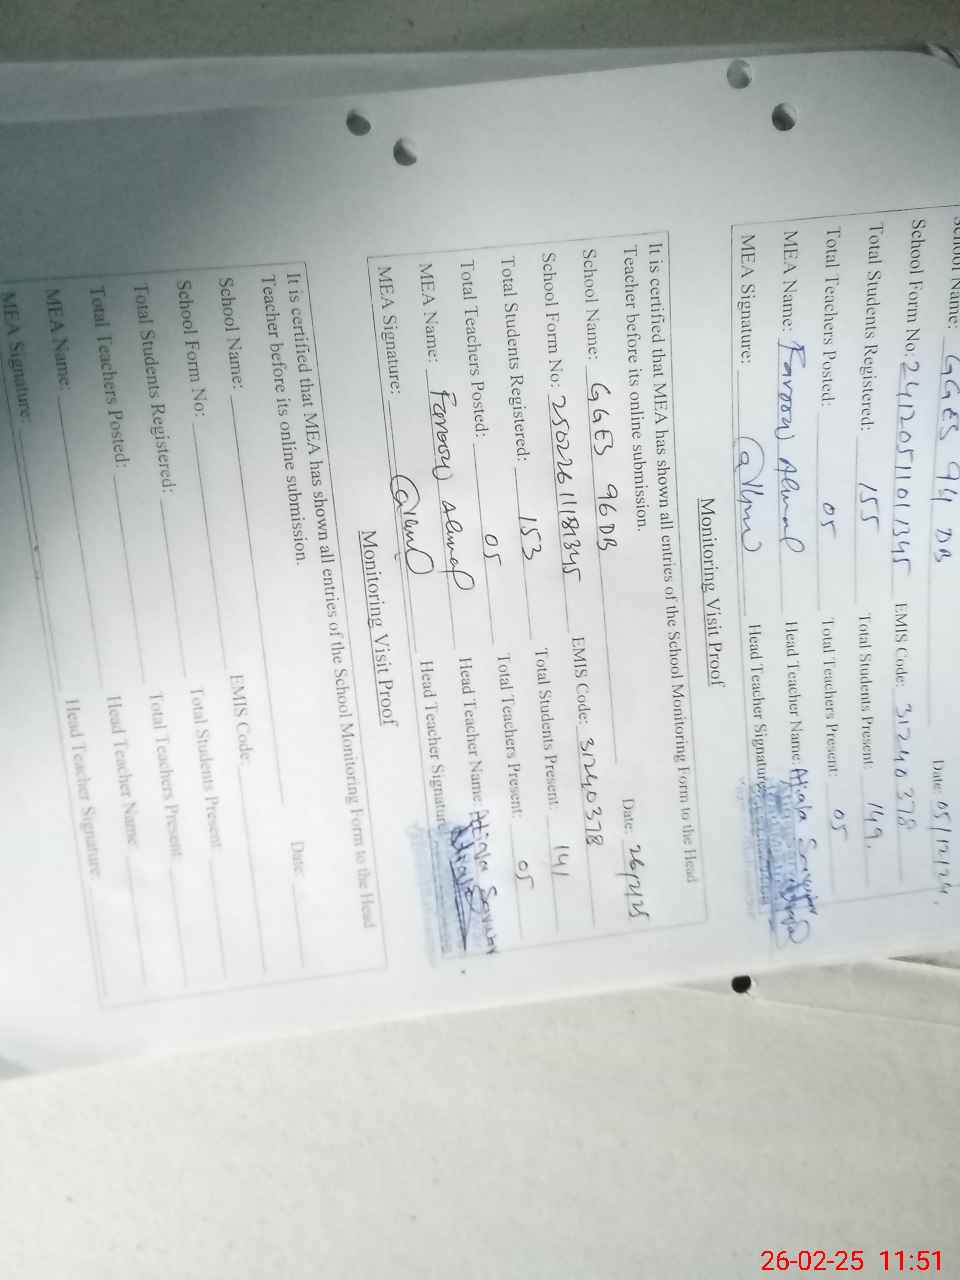 School Name: GGES 94 DB Date: 05/12/24.
School Form No: 241205110101345 EMIS Code: 31240378
Total Students Registered: 155 Total Students Present: 149.
Total Teachers Posted: 05 Total Teachers Present: 05
MEA Name: Farooq Ahmad Head Teacher Name: Atiqa Sarwar
MEA Signature: Head Teacher Signature:
Monitoring Visit Proof
It is certified that MEA has shown all entries of the School Monitoring Form to the Head
Teacher before its online submission.
School Name: GGES 96 DB Date: 26/2/25
School Form No: EMIS Code: 31240378
Total Students Registered: 153 Total Students Present: 141
Total Teachers Posted: 05 Total Teachers Present: 05
MEA Name: Farooq Ahmad Head Teacher Name: Atiqa Sarwar
MEA Signature: Head Teacher Signature
Monitoring Visit Proof
It is certified that MEA has shown all entries of the School Monitoring Form to the Head
Teacher before its online submission.
School Name: Date:
School Form No: EMIS Code:
Total Students Registered: Total Students Present
Total Teachers Posted: Total Teachers Present
MEA Name: Head Teacher Name
MEA Signature: Head Teacher Signature
26-02-25 11:51